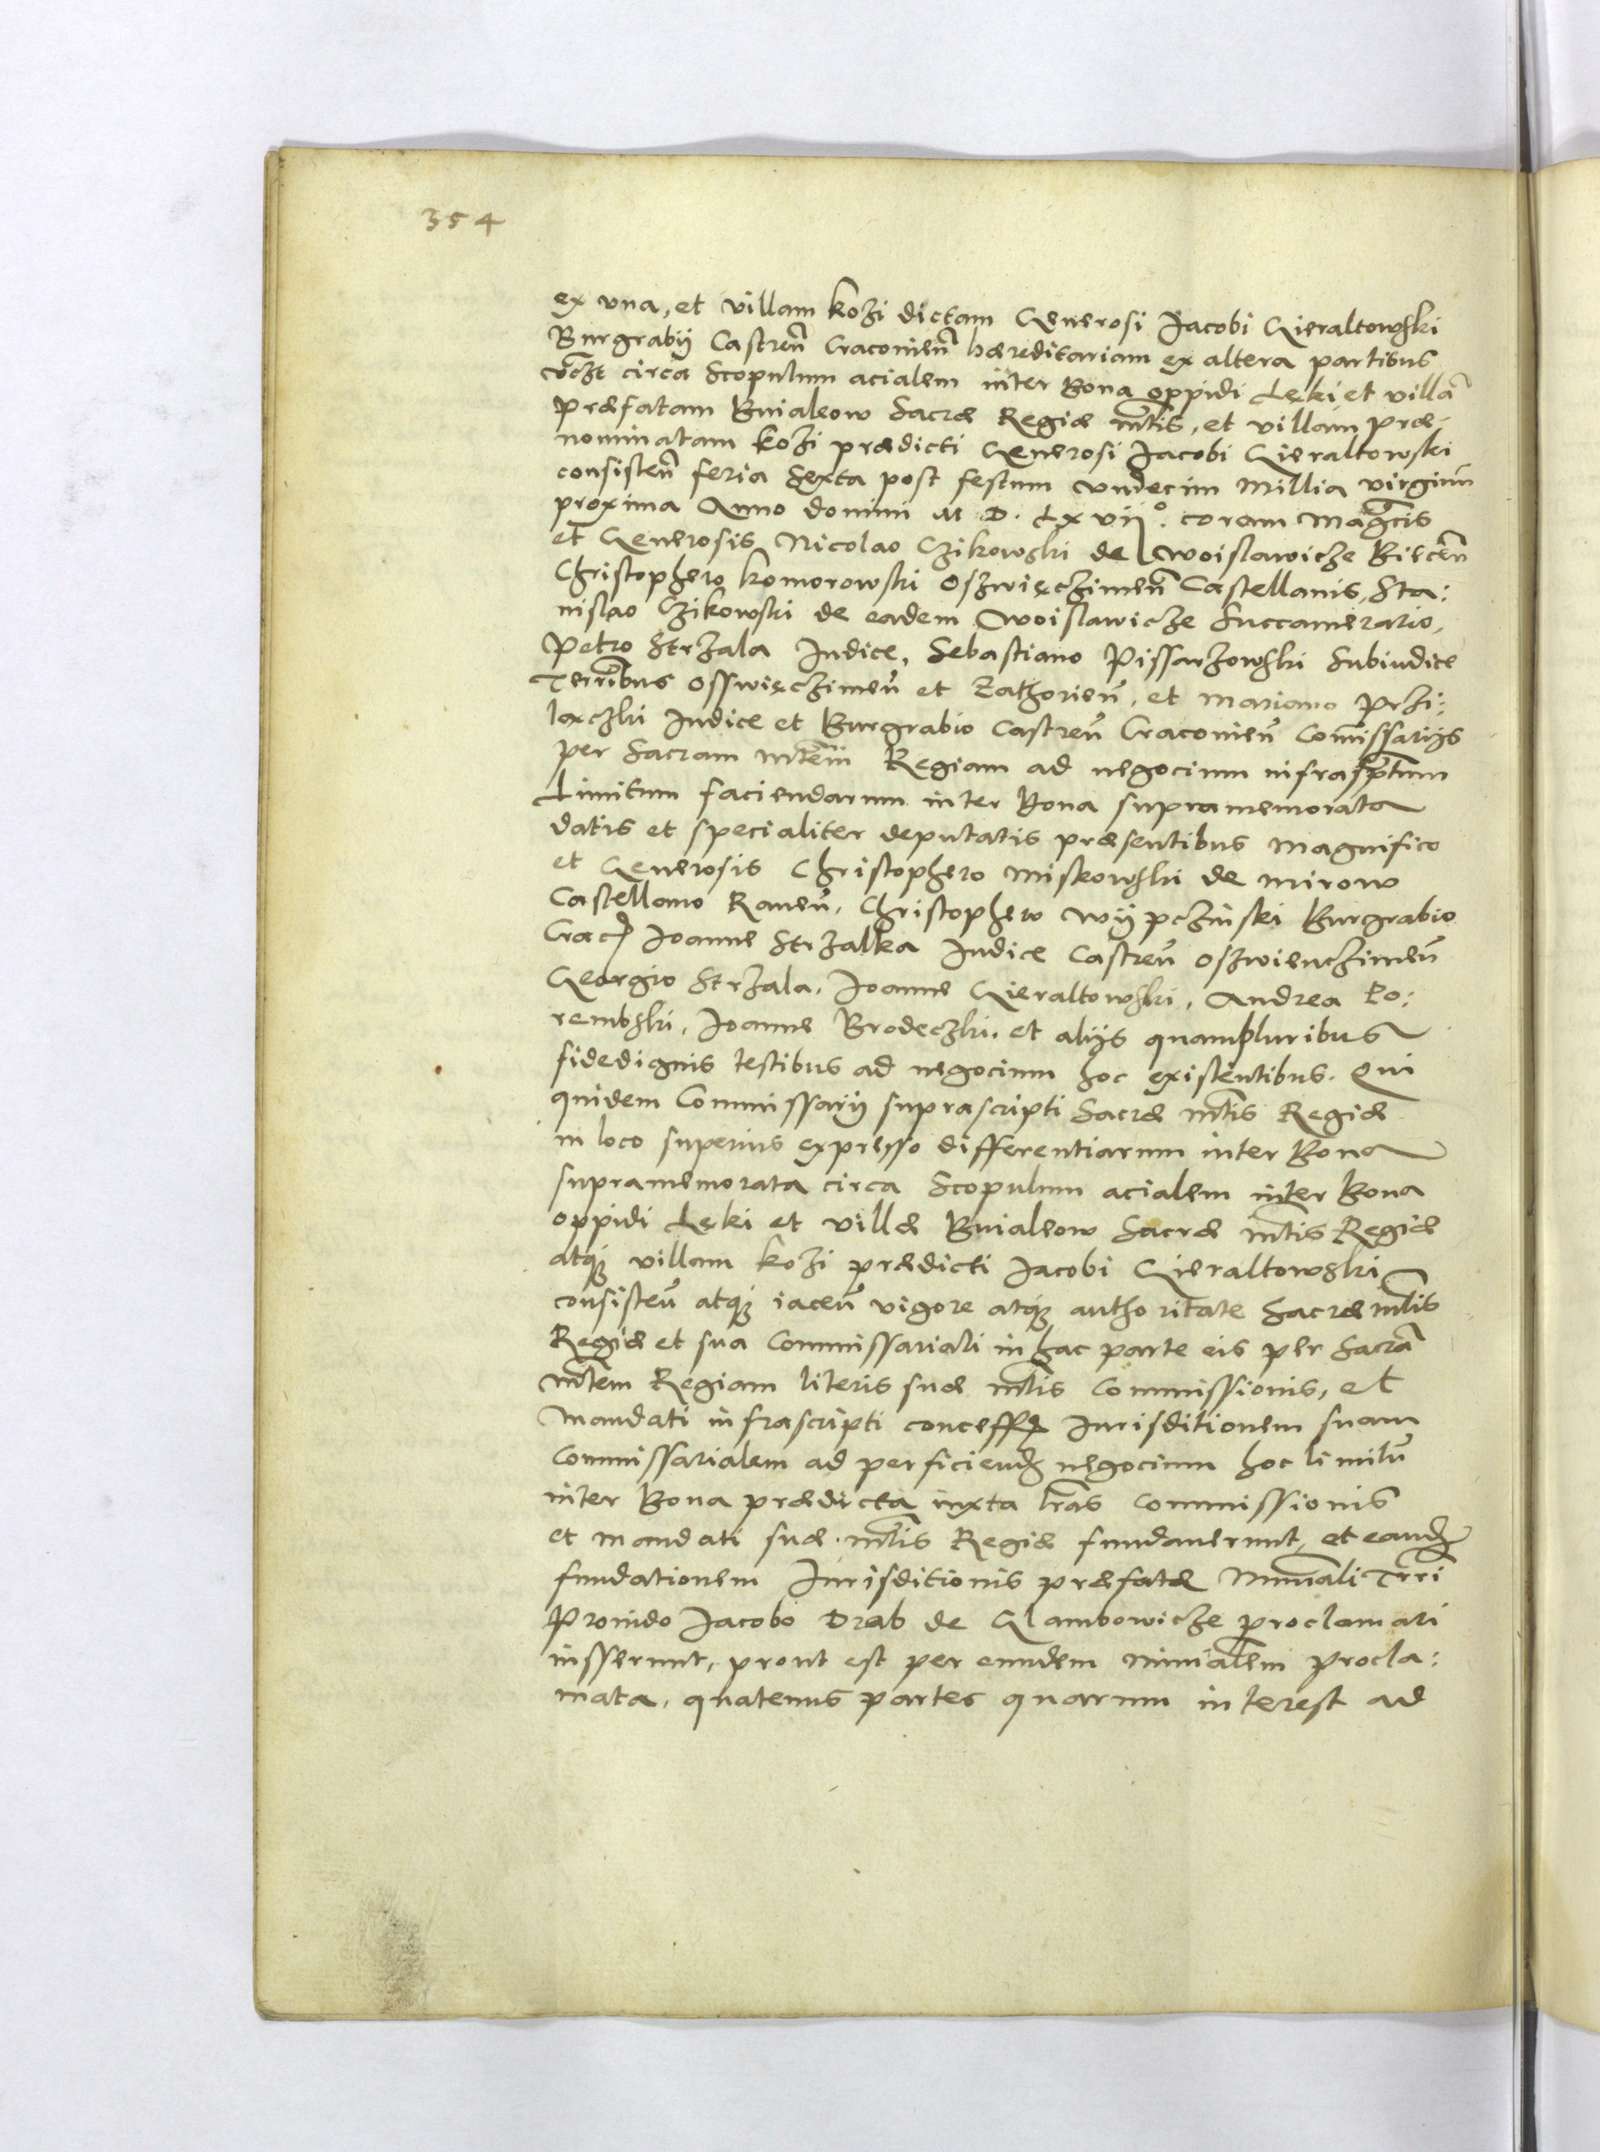 354
ex vna, et villam Kozi dictam Generosi Jacobi Gieraltowski
Burgrabij Castreñ Cracovieñ hæreditariam ex altera partibus
circa Scopulum acialem inter Bona oppidi Lęki et villã
præfatam Buiakow Sacræ Regiæ mtis, et villam præ-
nominatam Kozi prædicti Generosi Jacobi Gieraltowski
consisteñ feria Sexta post festum vndecim Millia virginum
proxima Anno domini M. D. Lxvijº. coram Magcis
et Generosis Nicolao Czikowski de Woislawicze Biecen
Christophero Komorowski Oszwięczimeñ Castellanis, Sta:
nislao Czikowski de eadem Woislawicze Succamerario,
Petro Strzala Judice, Sebastiano Pissarzowski Subiudice
Terribus Osswięczimeñ et Zathorieñ, et Mariano Przi:
lęczki Judice et Burgrabio Castreñ Cracovieñ Comissarijs
per Sacram Mtem Regiam ad negocium infrasptum
Limitum faciendarum inter Bona supramemorata
datis et specialiter deputatis præsentibus Magnifico
et Generosis Christophero Miskowski de Mirow
Castellano Raveñ, Christophero Wijpczinski Burgrabio
Crac Joanne Strzalka Judice Castreñ Oszwienczimeñ
Georgio Strzala, Joanne Gieraltowski, Andrea Po:
rembski, Joanne Brodeczki et alijs quampluribus
fidedignis testibus ad negocium hoc existentibus. Qui
quidem Commissarij suprascripti Sacræ Mtis Regiæ
in loco superius expresso differentiarum inter Bona
supramemorata circa Scopulum acialem inter Bona
oppidi Lęki et villæ Buiakow Sacræ Mtis Regiæ
atq̃ villam Kozi prædicti Jacobi Gieraltowski
consisteñ atq̃ iaceñ vigore atq̃ authoritate Sacræ Mtis
Regiæ et sua Commissariali in hac parte eis per Sacrã
Mtem Regiam literis suæ Mtis Commissionis, et
Mandati infrascripti Jurisditionem suam
Commissarialem ad perficiend negocium hoc limitũ
inter Bona prædicta iuxta lras Commissionis
et mandati suæ Mtis Regiæ fundaverunt, et eand
fundationem Jurisditionis præfatæ Minriali Trri
Provido Jacobo Drab de Glambowicze proclamari
iusserunt, prout est per eundem Minrialem procla:
mata, quatenus partes quarum interest ad